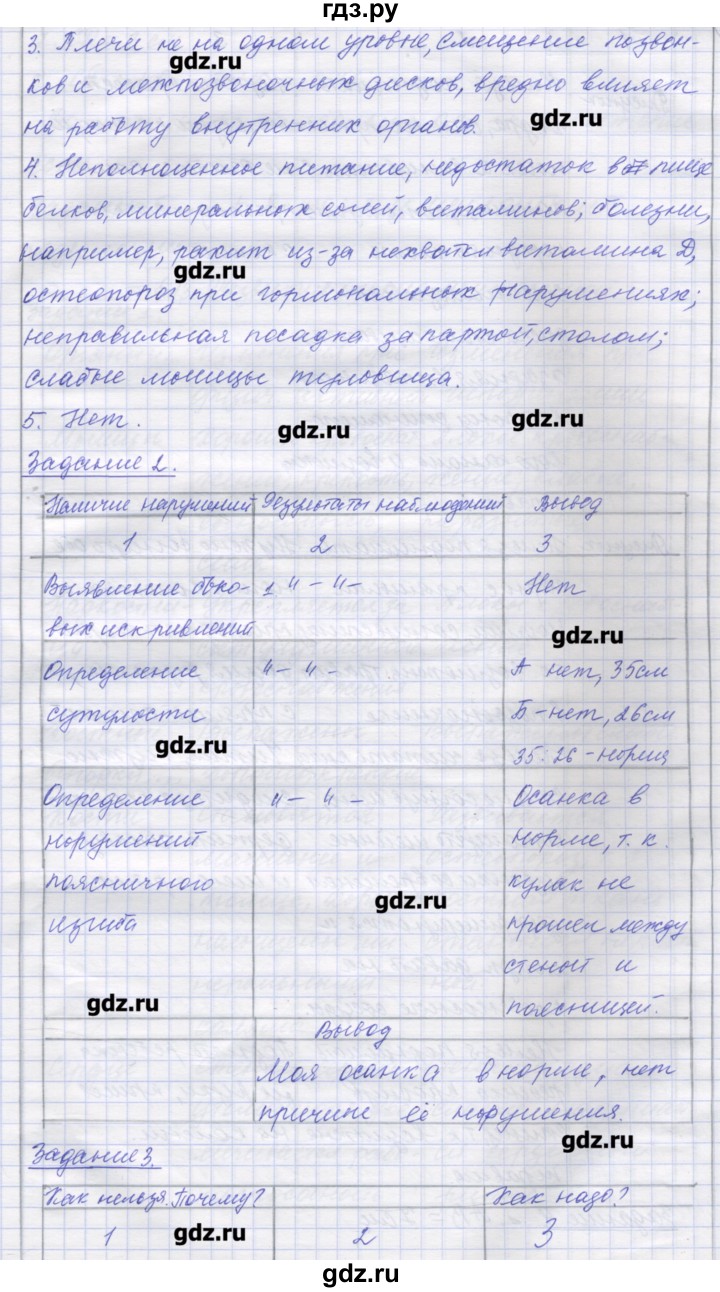 гдз.ру
3. Плечи не на одном уровне, смещение позвон-
gdz.ru
ков и межпозвоночных дисков, вредно влияет
на работу внутренних органов.
gdz.ru
4. Неполноценное питание, недостаток в пище
белков, минеральных солей, витаминов; болезни,
например, рахит из-за нехватки витамина Д,
gdz.ru
остеопороз при гормональных нарушениях;
неправильная посадка за партой, столом;
слабые мышцы туловища.
5. Нет.
gdz.ru
gdz.ru
Задание 2.
Наличие нарушений Результаты наблюдений Вывод
1 2 3
Выявление боко- 1 "–"– Нет
вых искривлений
gdz.ru
Определение "–"– А нет, 35см
сутулости Б-нет, 26см
gdz.ru
35:26-норма
Определение "–"– Осанка в
норушений норме, т.к.
поясничного кулак не
gdz.ru
изгиба прошел между
стеной и
gdz.ru
поясницей.
Вывод
Моя осанка в норме, нет
причин её нарушения.
gdz.ru
Задание 3.
Как нельзя. Почему? Как надо?
1 2 3
gdz.ru
gdz.ru